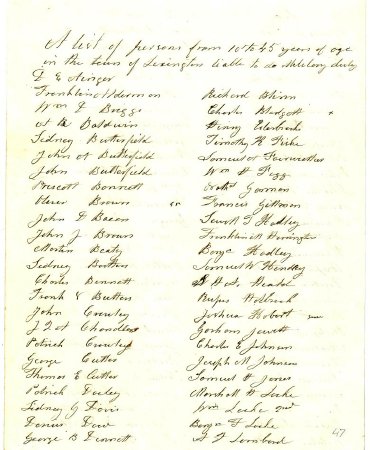 A list of persons from 18 to 45 years of age
in the town of Lexington liable to do Military duty
Franklin Alderman
Wm F Briggs
Baldwin
Sidney Butterfield
John A Butterfield
John Butterfield
Prescott Bennett
Oliver Brown
John F Bacon
John J Brown
Martin Beaty
Sidney Butters
Charles Bennett
Frank E Butters
John Crowley
Chandler
Patrick Crowley
George Cutler
Thomas E Cutler
Patrick Dacley
Sidney G Davis
Darius Dow
George B Dennett
Richard Blinn
Charles Blodgett
Henry
Timothy K Fiske
Samuel A
Wm H Figg
Gorman
Francis Gittman
T Hadley
Franklin Harrington
Benj Hadley
Samuel W Hendley
Heald
Rufus Holbrook
Joshua Hobart
Gorham Jewett
Charles E Johnson
Joseph M Johnson
Samuel A Jones
Marshall H Locke
Wm Locke 2nd
Benj F Locke
Lombard
47